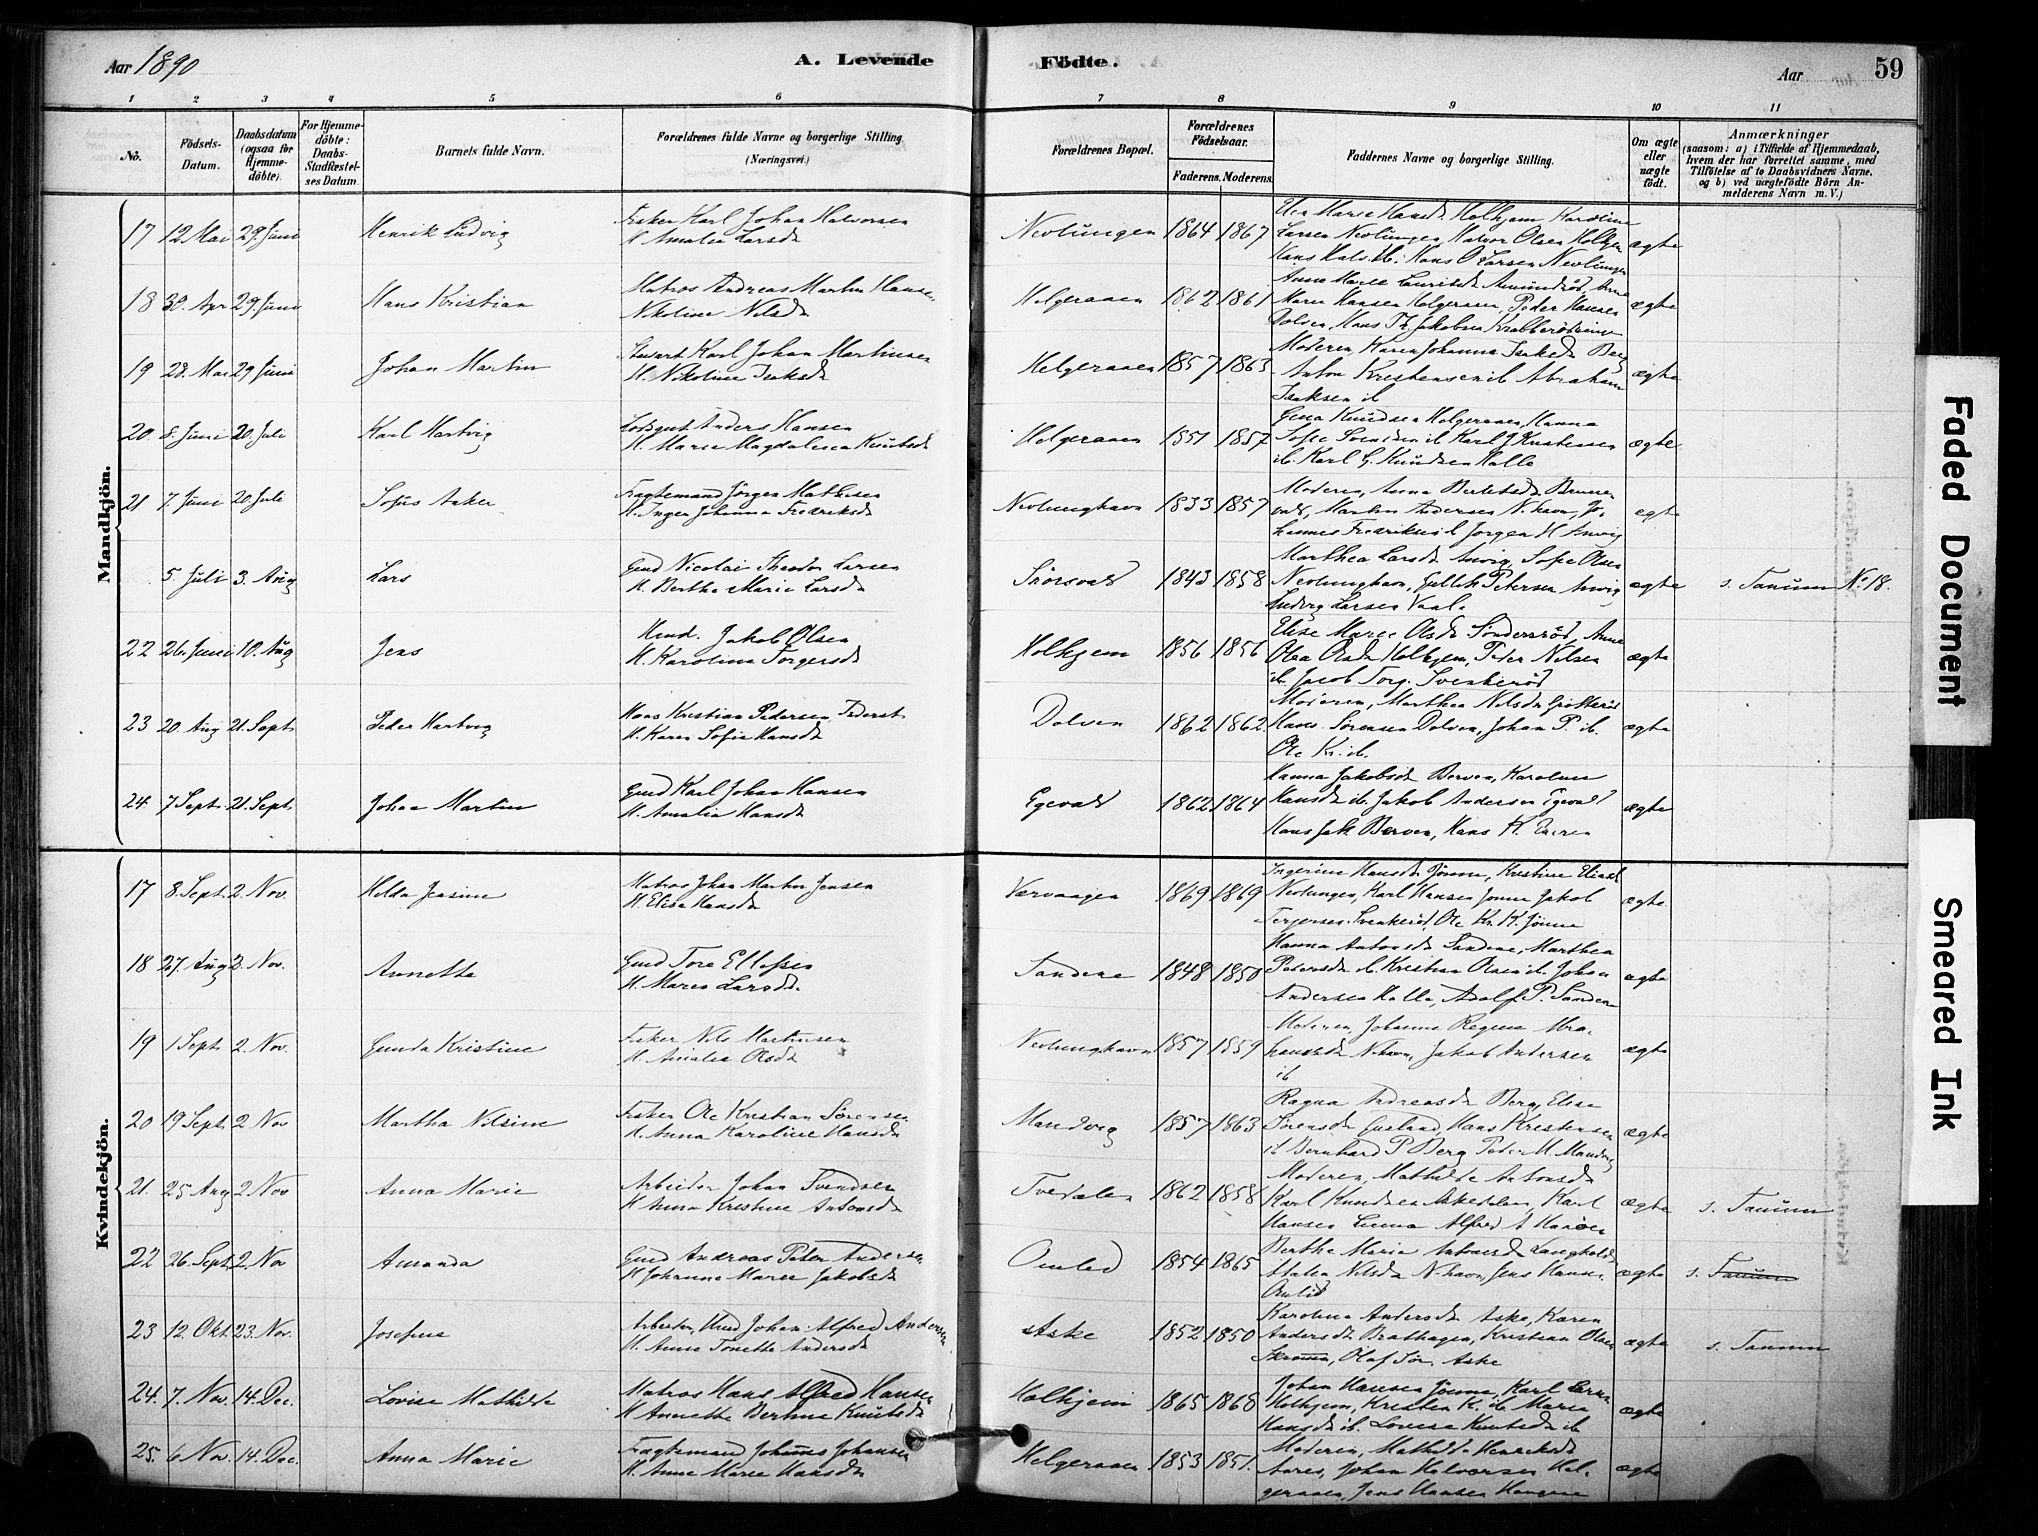 Aar 1890
A. Levende
Födte.
Aar
59
1 2 3 4 5 6 7 8 9 10 11
No.
Födsels-Datum.
Daabsdatum (ogsaa for Hjemme-döbte).
For Hjemme-döbte: Daabs-Stadfæstel-ses Datum.
Barnets fulde Navn.
Forældrenes fulde Navne og borgerlige Stilling (Næringsvei.)
Forældrenes Bopæl.
Forældrenes Födselsaar.
Faderens. Moderens.
Faddernes Navne og borgerlige Stilling.
Om ægte eller uægte födt.
Anmærkninger
(saasom: a) i Tilfælde af Hjemmedaab,
hvem der har forrettet samme, med
Tilföielse af to Daabsvidners Navne.
og b) ved uægtefödte Börn An-
melderens Navn m. V.)
Mandkjön.
17 12 Mai 29. Juni Henrik Ludvig
Fisker Karl Johan Halvorsen
H. Amalia Larsdr
Nevlungen 1864 1867
Larsen Nevlungen, Halvor Olsen Holkjem
ægte
18 30. Apr 29. Juni Hans Kristian
Matros Andreas Martin Hansen
Nikoline Nilsdr
Helgeraaen 1862 1861
Marie Hansen Helgeraaen, Peder Hansen
ægte
19 28. Mai 29 Juni Johan Martin
Stuvert Karl Johan Martinsen
H. Nikoline Isaksdr
Helgeraaen 1857 1863
Moderen, Karen Johanna Isaksdr Berg
Anton Kristensen ib Abraham
Isaksen ib
ægte
20. 8. Juni 20. Juli Karl Hartvig
Anders Hansen
H. Marie Magdalena Knutsdr
Helgeraaen 1851 1857
Gina Knudsen Helgeraaen, Hanna
Sofie Svendsen ib Karl J Kristensen
ib. Karl G. Knudsen Halle
ægte
21 7. Juni 20. Juli Sofus Anker
Fragtemand Jörgen Mathisen
H. Inger Johanna Fredriksdr
Nevlunghavn 1833 1857
Moderen, Anna
Martin Andersen N.havn, Jo-
hannes Fredriksen ib Jörgen H Anvig
ægte
5. Juli 3. Aug Lars
Gmd Nicolai Theodor Larsen
H. Berthe Marie Larsdr
1843 1858
Marthea Larsdr Anvig, Sofie Olsen
Nevlunghavn, Petersen Anvig
Ludvig Larsen Vaale
ægte
s. Tanum No. 18.
22 26. Juni 10. Aug Jens
Jakob Olsen
H. Karolina Torgersdr
Holkjem 1856 1856
Elise Marie Olsdr Sönderröd, Anne
Olea Olsdr Holkjem, Peter Nilsen
ib. Jacob Torg. Svenkeröd
ægte
23 20. Aug 21. Sept Peder Hartvig
Hans Kristian Pedersen
H. Karen Sofie Hansdr
Dolven 1862 1862.
Moderen, Marthea Nilsdr
Hans Sörensen Dolven, Johan P. ib.
Ole Kr. ib.
ægte
24. 7 Sept. 21. Sept. Johan Martin
Gmd Karl Johan Hansen
H. Amalia Hansdr
Egevald 1862 1864
Hanna Jakobsdr Berven, Karoline
Hansdr ib. Jakob Andersen Egevald
Hans Jak. Berven, Hans K.
ægte
Kvindekjön.
17 8. Sept. 2. Nov. Helda Jensine
Matros Johan Martin Jensen
H. Elise Hansdr
Værvaagen 1869 1869
Ingerine Hansdr Jönne, Kristine
Nevlungen, Karl Hansen Jönne Jakob
Terjensen Svenkeröd, Ole Kr. K. Jönne
ægte
18 27. Aug 2. Nov. Annette
Gmd Tore Ellefsen
H. Maren Larsdr.
Sandene 1848 1850
Hanna Antonsdr Sandene, Marthea
Petersdr ib. Kristian Olsen ib. Johan
Andersen Halle, Adolf P. Sandene
ægte
19 1 Sept. 2. Nov. Gunda Kristine
Fisker Nils Martinsen
H. Amalia Olsdr
Nevlunghavn 1857 1859
Moderen, Johanna Regine Abra-
hamsdr N.havn, Jakob Andersen
ib
ægte
20 19 Sept. 2 Nov Martha Nilsine
Fisker Ole Kristian Sörensen
H. Anna Karoline Hansdr
Mandvig 1857 1863
Ragna Andreasdr Berg, Elise
Sörensdr Gusland, Hans Kristensen
ib Bernhard P Berg Peder M Mandvig
ægte
21. 25 Aug 2 Nov Anna Marie
Arbeider Johan Svendsen
H Anna Kristine Antonsdr
Tvedalen 1862 1858
Moderen, Mathilde Antonsdr
Karl Knudsen Askedalen, Karl
Hansen Alfred
ægte
s. Tanum
22 26. Sept. 2. Nov Amanda
Gmd Andreas Peter Andersen
H Johanne Marie Jakobsdr
Omlid 1854 1865
Berthe Marie Antonsdr
Nilsdr N.havn, Jens Hansen
Omlid
ægte
s. Tanum
23 12. Okt. 23. Nov. Josefine
Arbeider, Johan Alfred Andersen
H. Anne Tonette Andersdr
Aske 1852 1850
Karolina Andersdr Aske, Karen
Andersdr Brathagen, Kristian Olsen
Olaf Sör. Aske
ægte
s. Tanum
24. 7. Nov. 14. Dec. Lovise Mathilde
Matros Hans Alfred Hansen
H Annette Berthine Knutsdr
Holkjem 1865 1868
Johan Hansen Jönne, Karl
Holkjem, Kristen K. ib Maria
Hansdr ib. Lovise Knutsdr ib
ægte
25. 6 Nov. 14. Dec. Anna Marie
Fragtemand Johannes Johansen
H. Anne Marie Hansdr
Helgeraaen 1853 1851.
Moderen, Mathilde Henriksdr
Aares, Johan Halvorsen Hel-
geraaen, Jens Hansen
ægte
Faded Document
Smeared Ink